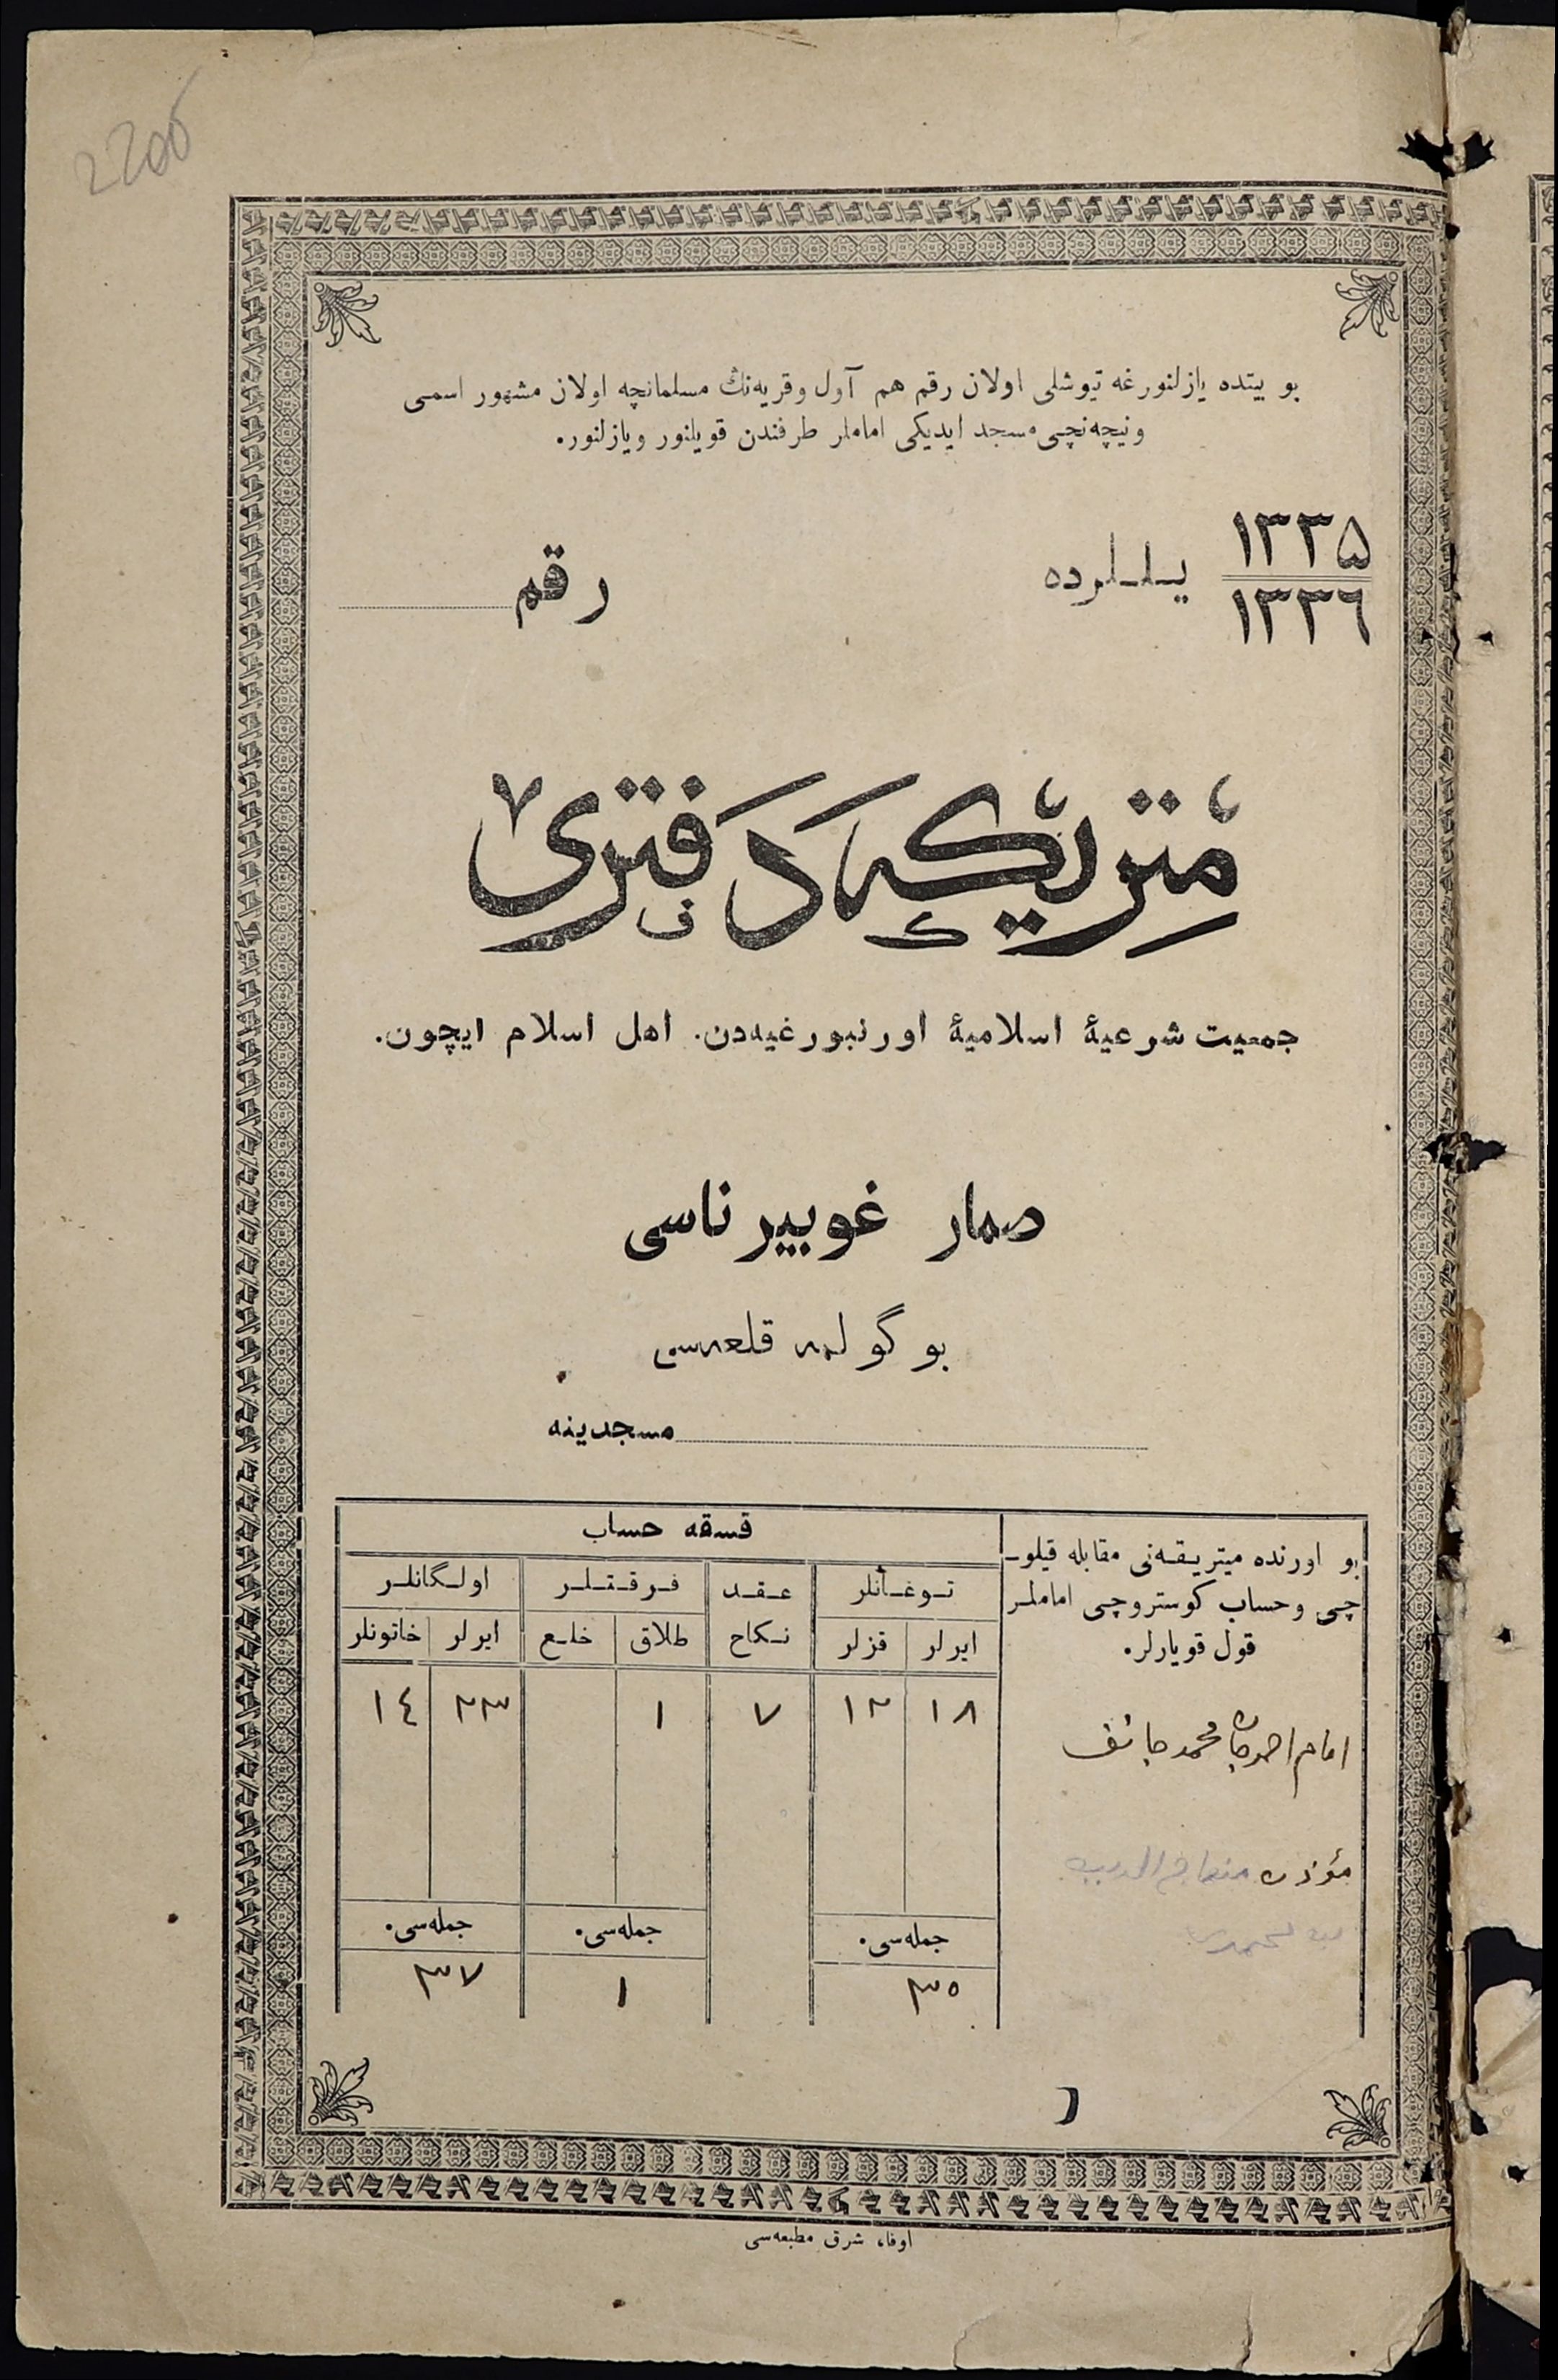 2200
بو بيتده يازلنورغه تيوشلى اولان رقم هم آول وقريه‌نڭ مسلمانچه اولان مشهور اسمى
ونيچه‌نچى مسجد ايديكى اماملر طرفندن قويلنور ويازلنور.
١٣٣٥
١٣٣٦
ييللرده
رقم
متريكه دفترى
جمعيت شرعيهٔ اسلاميهٔ اورنبورغيه‌دن. اهل اسلام ايچون.
صمار غوبيرناسى
بوگولمه قلعه‌سى
مسجدينه
بو اورنده ميتريقه‌نى مقابله قيلو-
چى وحساب كوستروچى اماملر
قول قويارلر.
قسقه حساب
توغانلر
عقد
نكاح
فرقتلر
اولگانلر
ايرلر
قزلر
طلاق
خلع
ايرلر
خاتونلر
١٨
١٢
٧
١
٢٣
١٤
امام احمدجان محمدجانف
مؤذن
جمله‌سى.
جمله‌سى.
جمله‌سى.
٣٥
١
٣٧
اوفا، شرق مطبعه‌سى